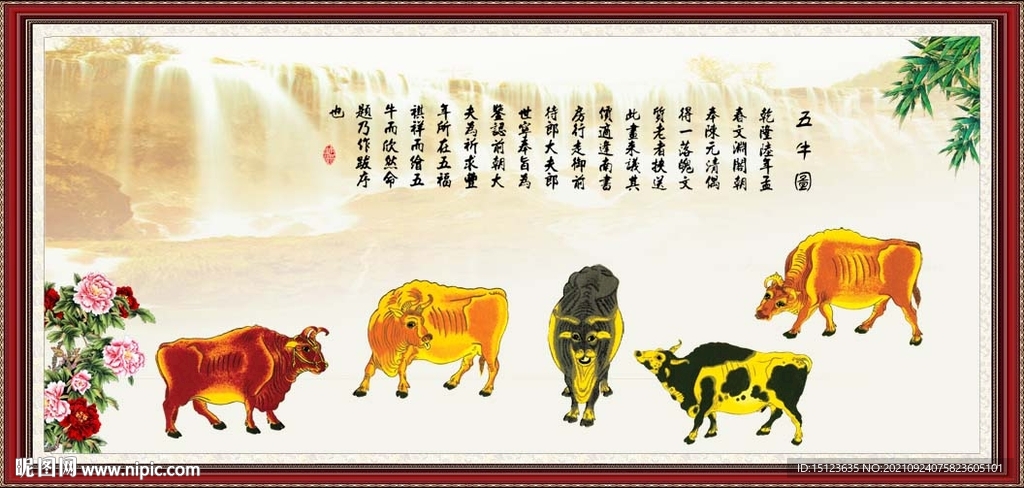 五牛圖
乾隆陸年孟
春文淵閣朝
奉陳元清偶
得一落魄文
質老者扶送
此畫來議其
價適逢南書
房行走御前
待郎大夫郎
世寧奉旨為
鑒認前朝大
夫為祈求豐
年所在五福
祺祥而繪五
牛而欣然命
題乃作跋序
也
昵图网 www.nipic.com
ID:15123635 NO:20210924075823605101